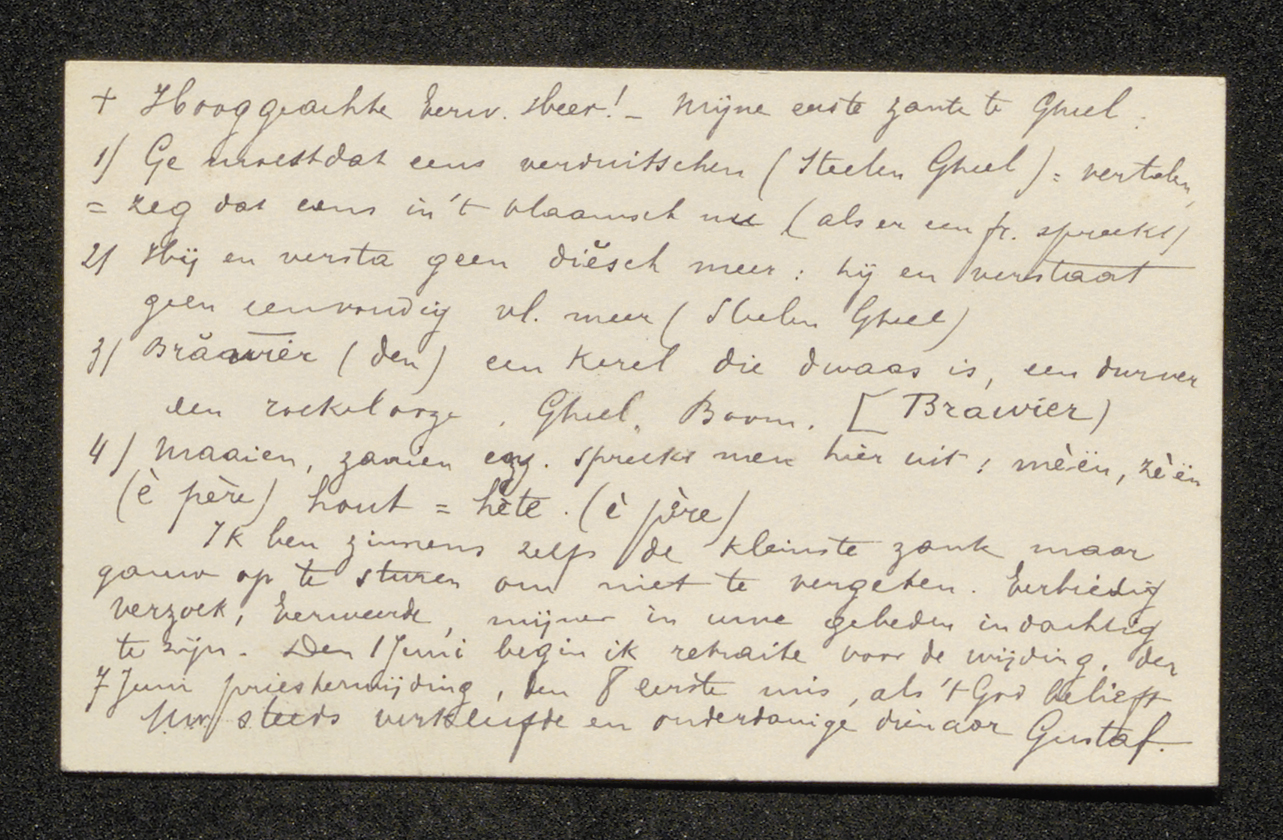 + Hooggeachte Eerw. Heer! – Mijne eerste zante te Gheel.
1) Ge moest dat eens verduitschen (Steelen Gheel) = vertalen,
= zeg dat eens in 't vlaamsch (als er een fr. spreekt)
2) Hij en versta geen diësch meer: hij en verstaat
geen eenvoudig vl. meer (Steelen Gheel)
3) Brăawier (den) een kerel die dwaas is, een durver
een roekelooze, Gheel, Boom. [Brawier)
4) Maaien, zaaien enz. spreekt men hier uit: mèën, zèën
(è père) hout = hète. (è père)
Ik ben zinnens zelfs de kleinste zank maar
gauw op te sturen om niet te vergeten. Eerbiedig
verzoek, Eerweerde, mijner in uwe gebeden indachtig
te zijn. Den 1 Juni begin ik retraite voor de wijding, den
7 Juni priesterwijding, den 8 eerste mis, als 't God belieft
Uw steeds verkleefde en onderdanige dienaar Gustaf.